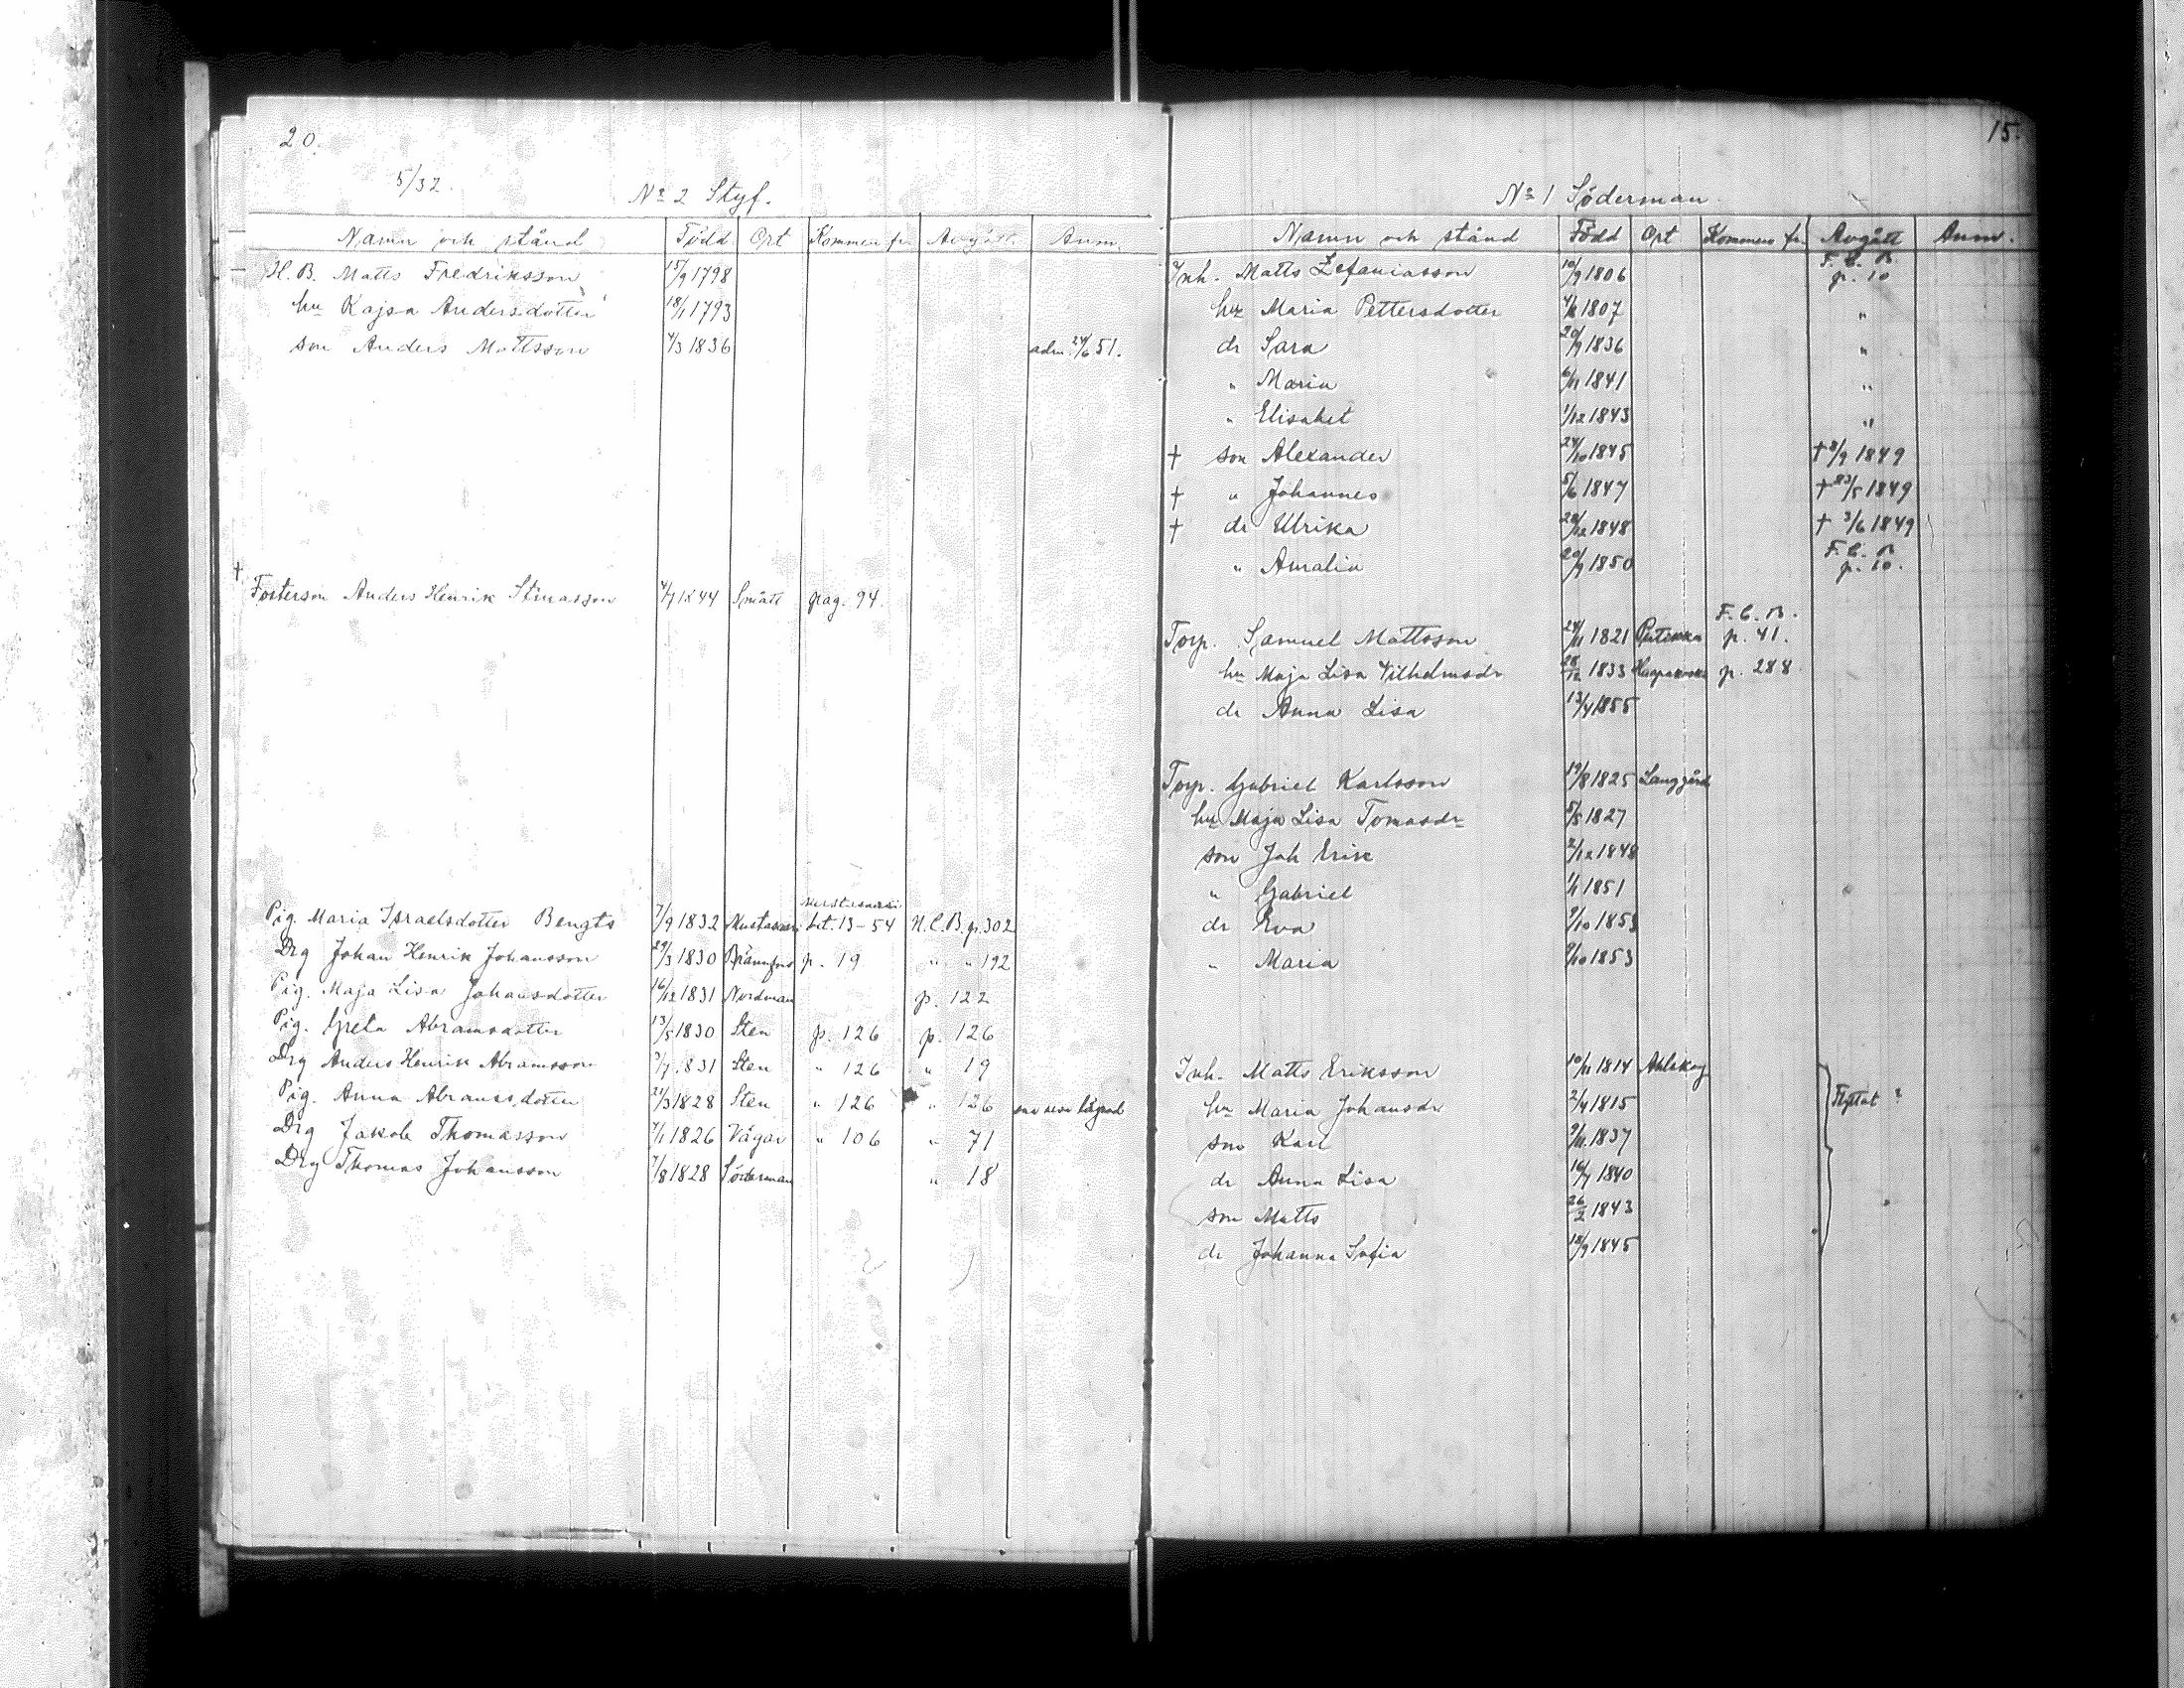 20.
5/32.
No 2 Styf.
Namn och stånd Född Ort Kommen fr. Avgått Anm.
H. B. Matts Fredriksson 15/9 1798
hu Kajsa Andersdotter 18/1 1793
son Anders Mattsson 4/3 1836 adm. 24/6 51.
†
Fosterson Anders Henrik Stinasson 4/7 1844 Smått pag. 94.
Pig. Maria Israelsdotter Bengts 7/9 1832 bet. 13-54 N.C.B. p. 302
Drg Johan Henrik Johansson 29/3 1830 Brännfors p. 19 " " 192
Pig. Maja Lisa Johansdotter 16/12 1831 Nordman p. 122
Pig. Greta Abramsdotter 13/5 1830 Sten p. 126 p. 126
Drg Anders Henrik Abramsson 1831 Sten " 126 " 19
Pig. Anna Abramsdotter 21/3 1828 Sten " 126 " 126
Drg Jakob Thomasson 7/1 1826 Vägar " 106 " 71
Drg Thomas Johansson 7/8 1828 Söderman " 18
15.
No 1 Söderman
Namn och stånd Född Ort Kommen fr. Avgått Anm.
Inh. Matts Zefaniasson 10/9 1806 F. C. B. p. 10
hu Maria Pettersdotter 1807 "
dr Sara 20/9 1836 "
" Maria 6/11 1841 "
" Elisabet 1/12 1843 "
† son Alexander 24/10 1845 † 8/9 1849
† " Johannes 5/6 1847 † 23/5 1849
† dr Ulrika 28/12 1848 † 3/6 1849
" Amalia 20/9 1850 F. C. B. p. 10.
F. C. B.
Torp. Samuel Mattsson 24/11 1821 p. 41.
hu Maja Lisa Vilhelmsdr 28/12 1833 p. 288
dr Anna Lisa 13/4 1855
Torp. Gabriel Karlsson 19/8 1825 Långgård
hu Maja Lisa Tomasdr 5/5 1827
son Joh Erik 2/12 1848
" Gabriel 1/1 1851
dr Eva 9/10 1853
" Maria 9/10 1853
Inh. Matts Eriksson 10/11 1814 Ahlskog
hu Maria Johansdr 2/4 1815 Flyttat ?
son Karl 9/11 1837
dr Anna Lisa 16/7 1840
son Matts 26/2 1843
dr Johanna Sofia 18/9 1845